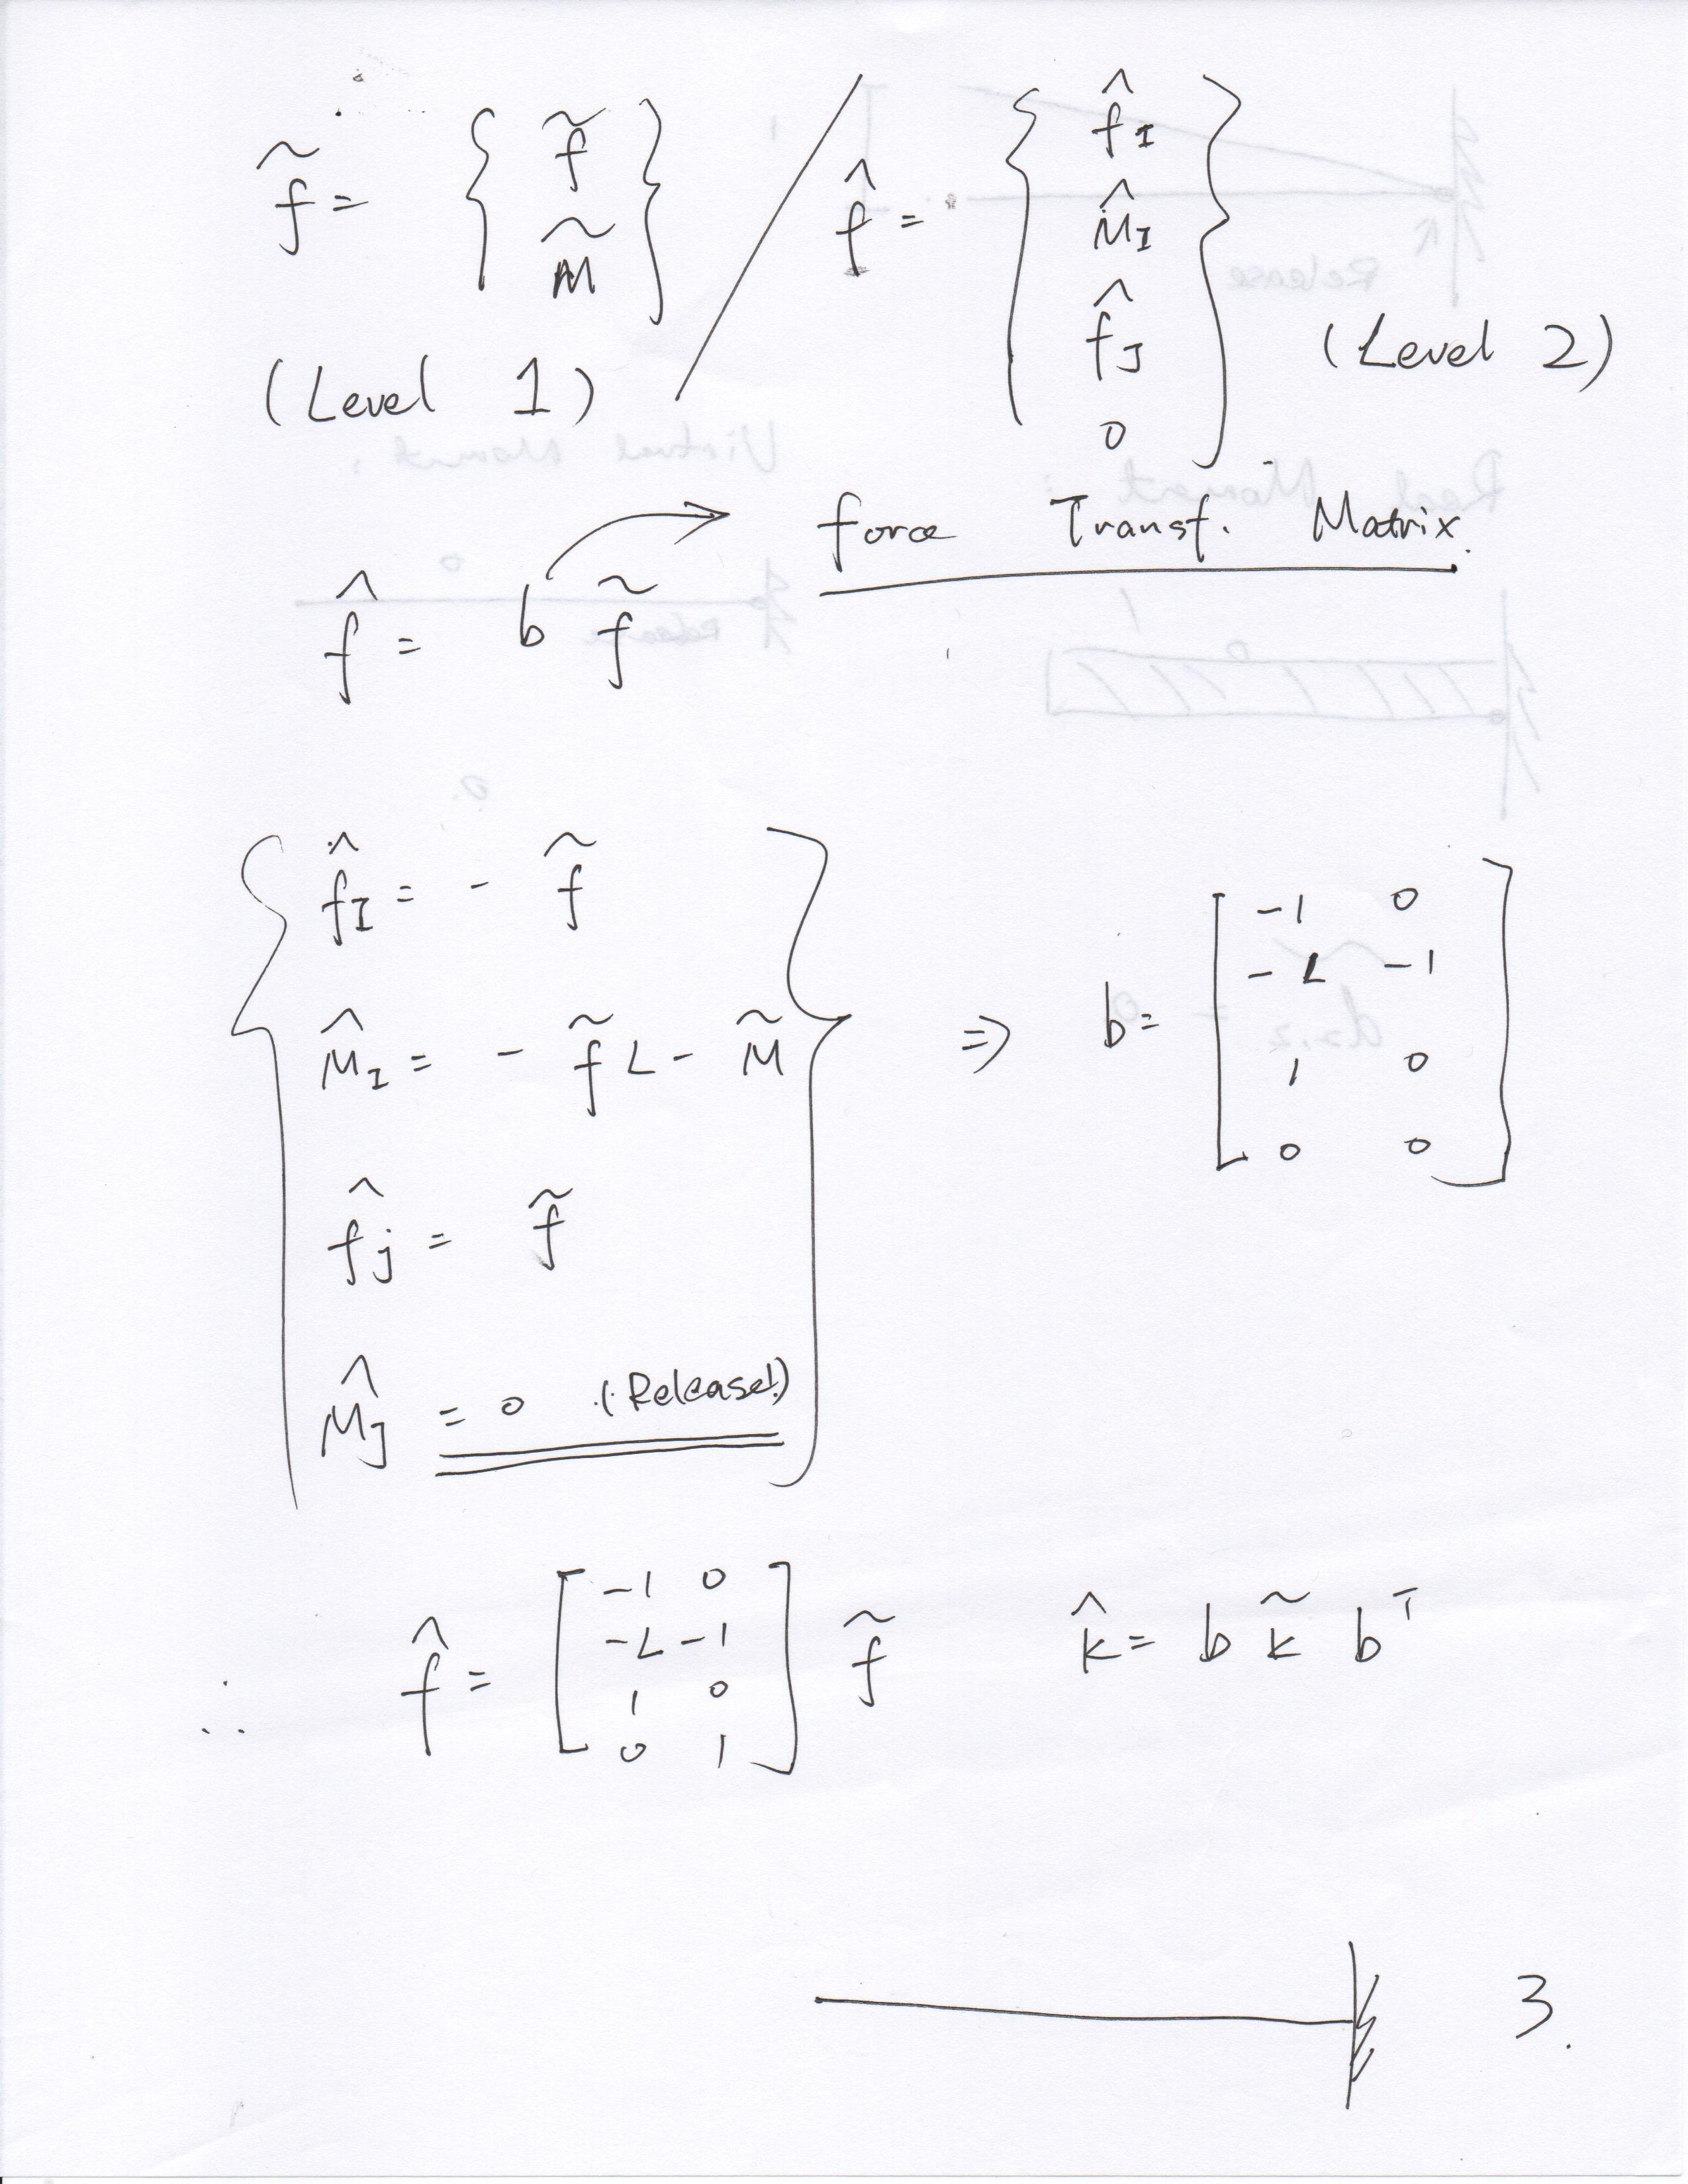 f̃ = { f̃ M̃ } (Level 1)
f̂ = { f̂I M̂I f̂J 0 } (Level 2)
f̂ = b f̃ → Force Transf. Matrix.
f̂I = - f̃
M̂I = - f̃ L - M̃
f̂j = f̃
M̂J = 0 (Release!)
⇒ b = [ -1 0
-L -1
1 0
0 0 ]
∴ f̂ = [ -1 0
-L -1
1 0
0 1 ] f̃
k̂ = b k̃ bᵀ
3.